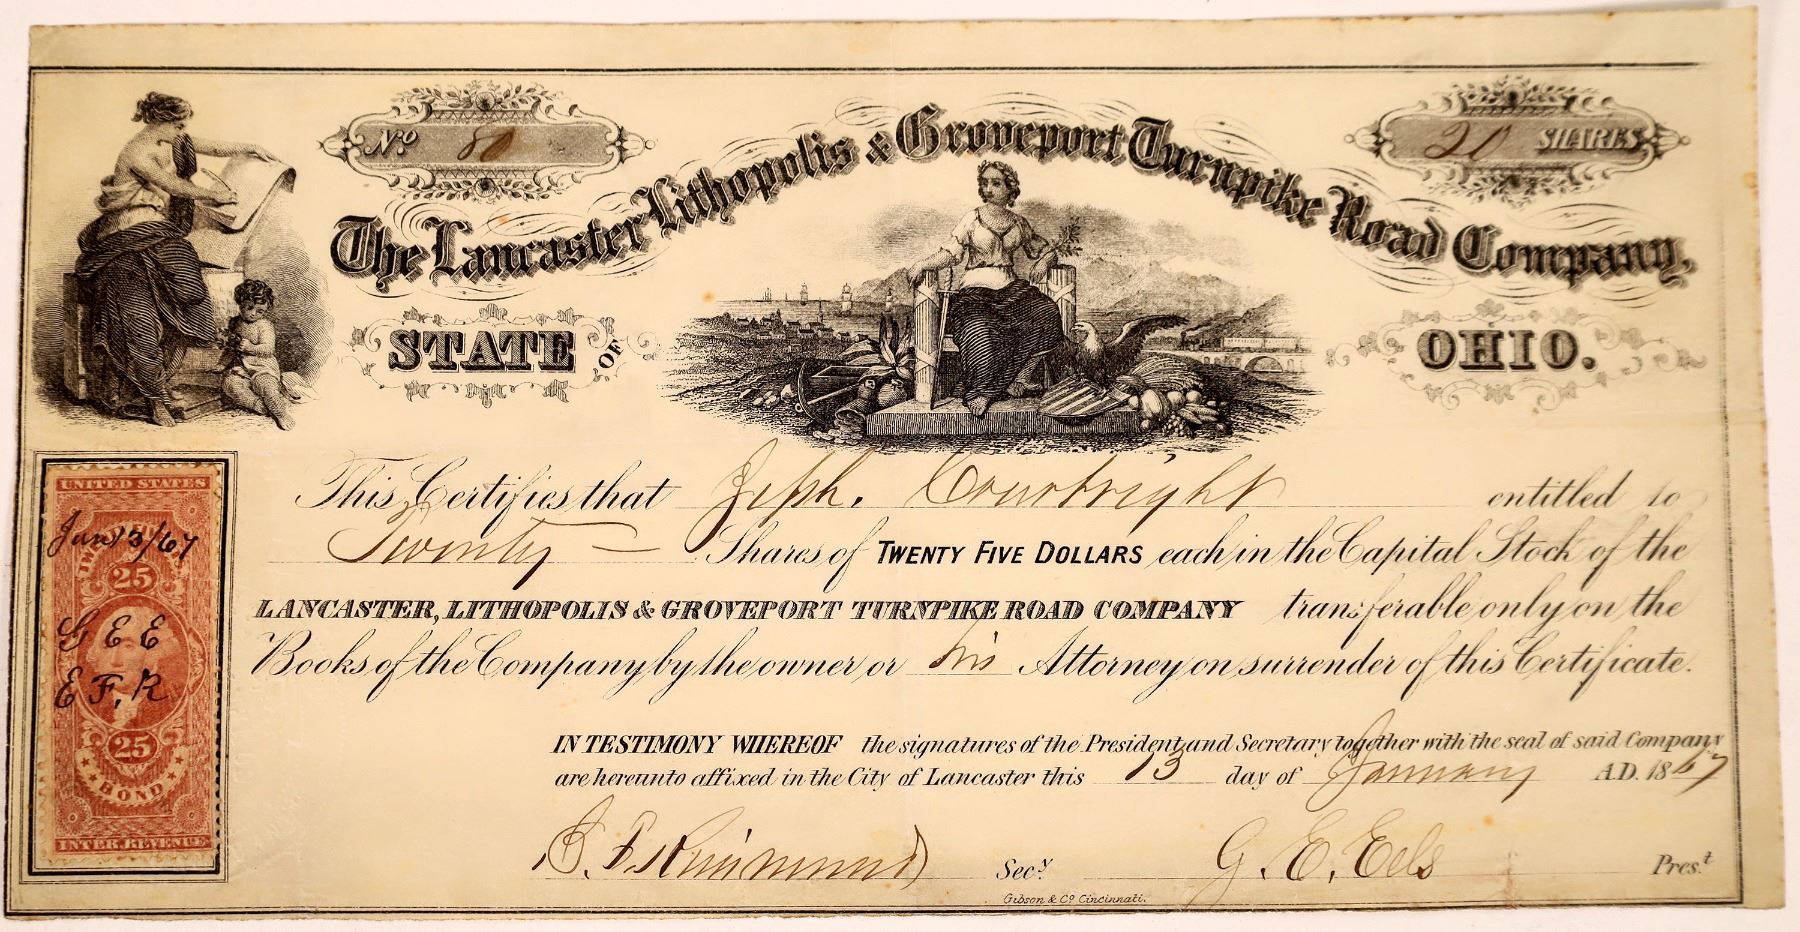 No. 80
20 SHARES
The Lancaster Lithopolis & Groveport Turnpike Road Company,
STATE OF OHIO.
This Certifies that Jeph. Courtright entitled to
Twenty — Shares of TWENTY FIVE DOLLARS each in the Capital Stock of the
LANCASTER, LITHOPOLIS & GROVEPORT TURNPIKE ROAD COMPANY transferable only on the
Books of the Company by the owner or his Attorney on surrender of this Certificate.
IN TESTIMONY WHEREOF the signatures of the President and Secretary together with the seal of said Company
are hereunto affixed in the City of Lancaster this 13 day of January A.D. 1867
G. E. Eels Prest
Secy.
Gibson & Co. Cincinnati.
UNITED STATES
Jan 13/67
25
G E E
E F. R
25
BOND
INTER. REVENUE